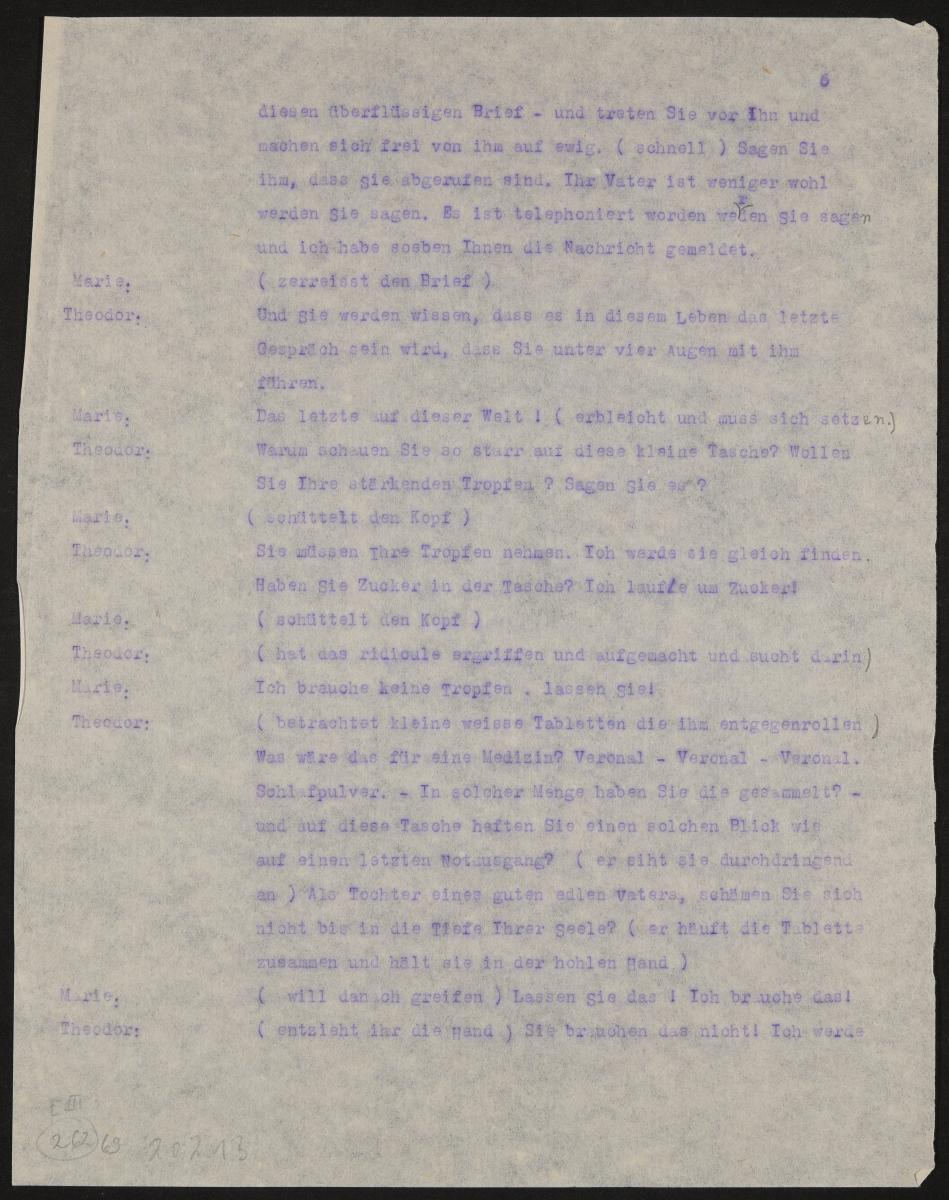 6
diesen überflüssigen Brief - und treten Sie vor Ihn und
machen sich frei von ihm auf ewig. ( schnell ) Sagen Sie
ihm, dass Sie abgerufen sind. Ihr Vater ist weniger wohl
werden Sie sagen. Es ist telephoniert worden werden Sie sagen
und ich habe soeben Ihnen die Nachricht gemeldet.
Marie: ( zerreisst den Brief )
Theodor: Und Sie werden wissen, dass es in diesem Leben das letzte
Gespräch sein wird, dass Sie unter vier Augen mit ihm
führen.
Marie: Das letzte auf dieser Welt ! ( erbleicht und muss sich setzen.)
Theodor: Warum schauen Sie so starr auf diese kleine Tasche? Wollen
Sie Ihre stärkenden Tropfen ? Sagen Sie es ?
Marie: ( schüttelt den Kopf )
Theodor: Sie müssen Ihre Tropfen nehmen. Ich werde sie gleich finden.
Haben Sie Zucker in der Tasche? Ich laufe um Zucker!
Marie: ( schüttelt den Kopf )
Theodor: ( hat das ridicule ergriffen und aufgemacht und sucht darin)
Marie: Ich brauche keine Tropfen . lassen Sie!
Theodor: ( betrachtet kleine weisse Tabletten die ihm entgegenrollen )
Was wäre das für eine Medizin? Veronal - Veronal - Veronal.
Schlafpulver. - In solcher Menge haben Sie die gesammelt? -
und auf diese Tasche heften Sie einen solchen Blick wie
auf einen letzten Notausgang? ( er siht sie durchdringend
an ) Als Tochter eines guten edlen Vaters, schämen Sie sich
nicht bis in die Tiefe Ihrer Seele? ( er häuft die Tablette
zusammen und hält sie in der hohlen Hand )
Marie: ( will danach greifen ) Lassen Sie das ! Ich brauche das!
Theodor: ( entzieht ihr die Hand ) Sie brauchen das nicht! Ich werde
E III
262 69 20213